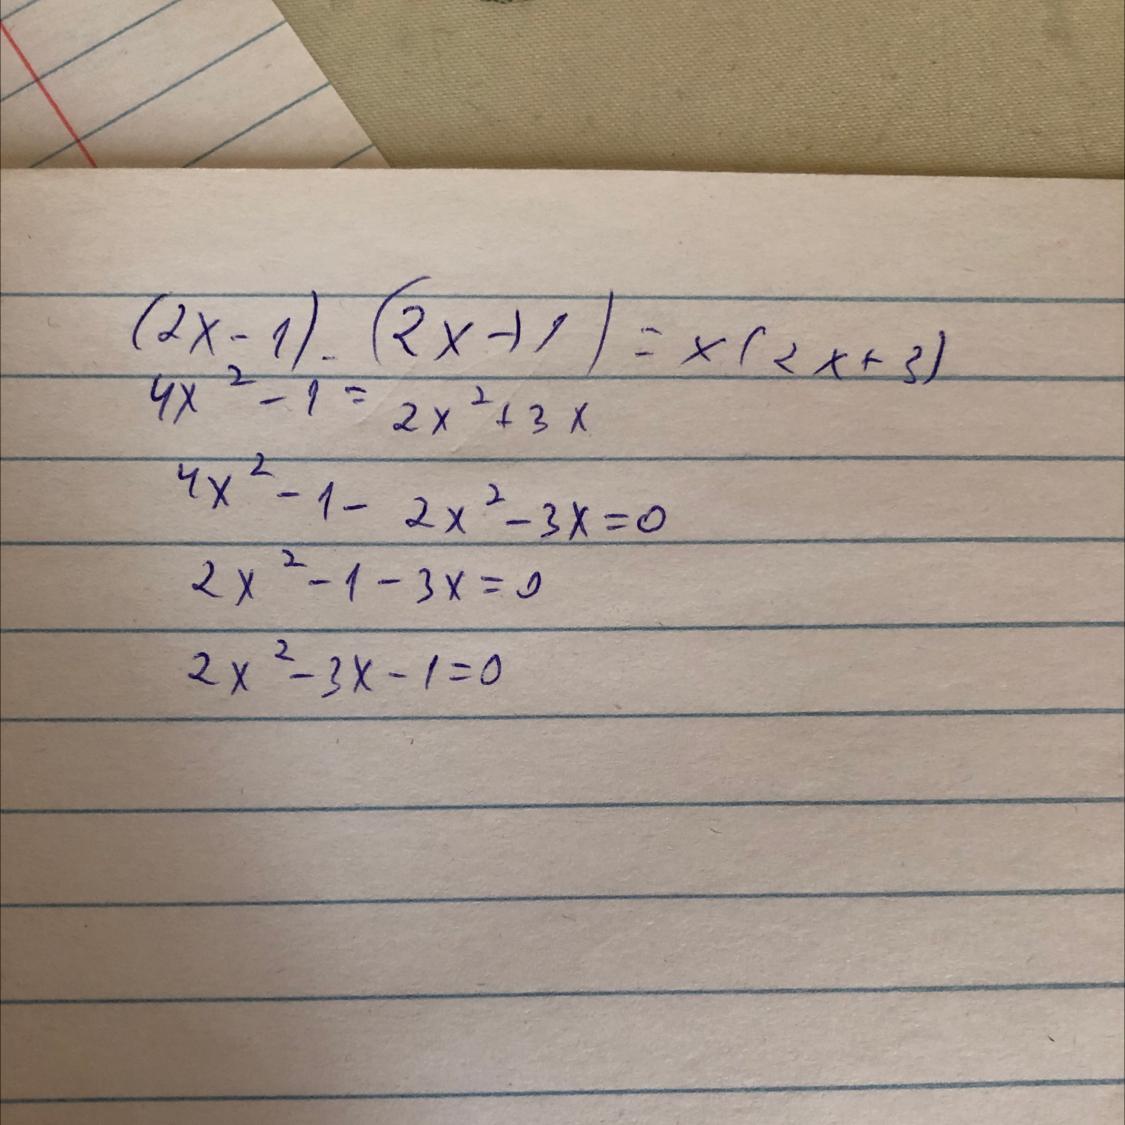 (2x-1).(2x+1)=x(2x+3)
4x²-1=2x²+3x
4x²-1-2x²-3x=0
2x²-1-3x=0
2x²-3x-1=0